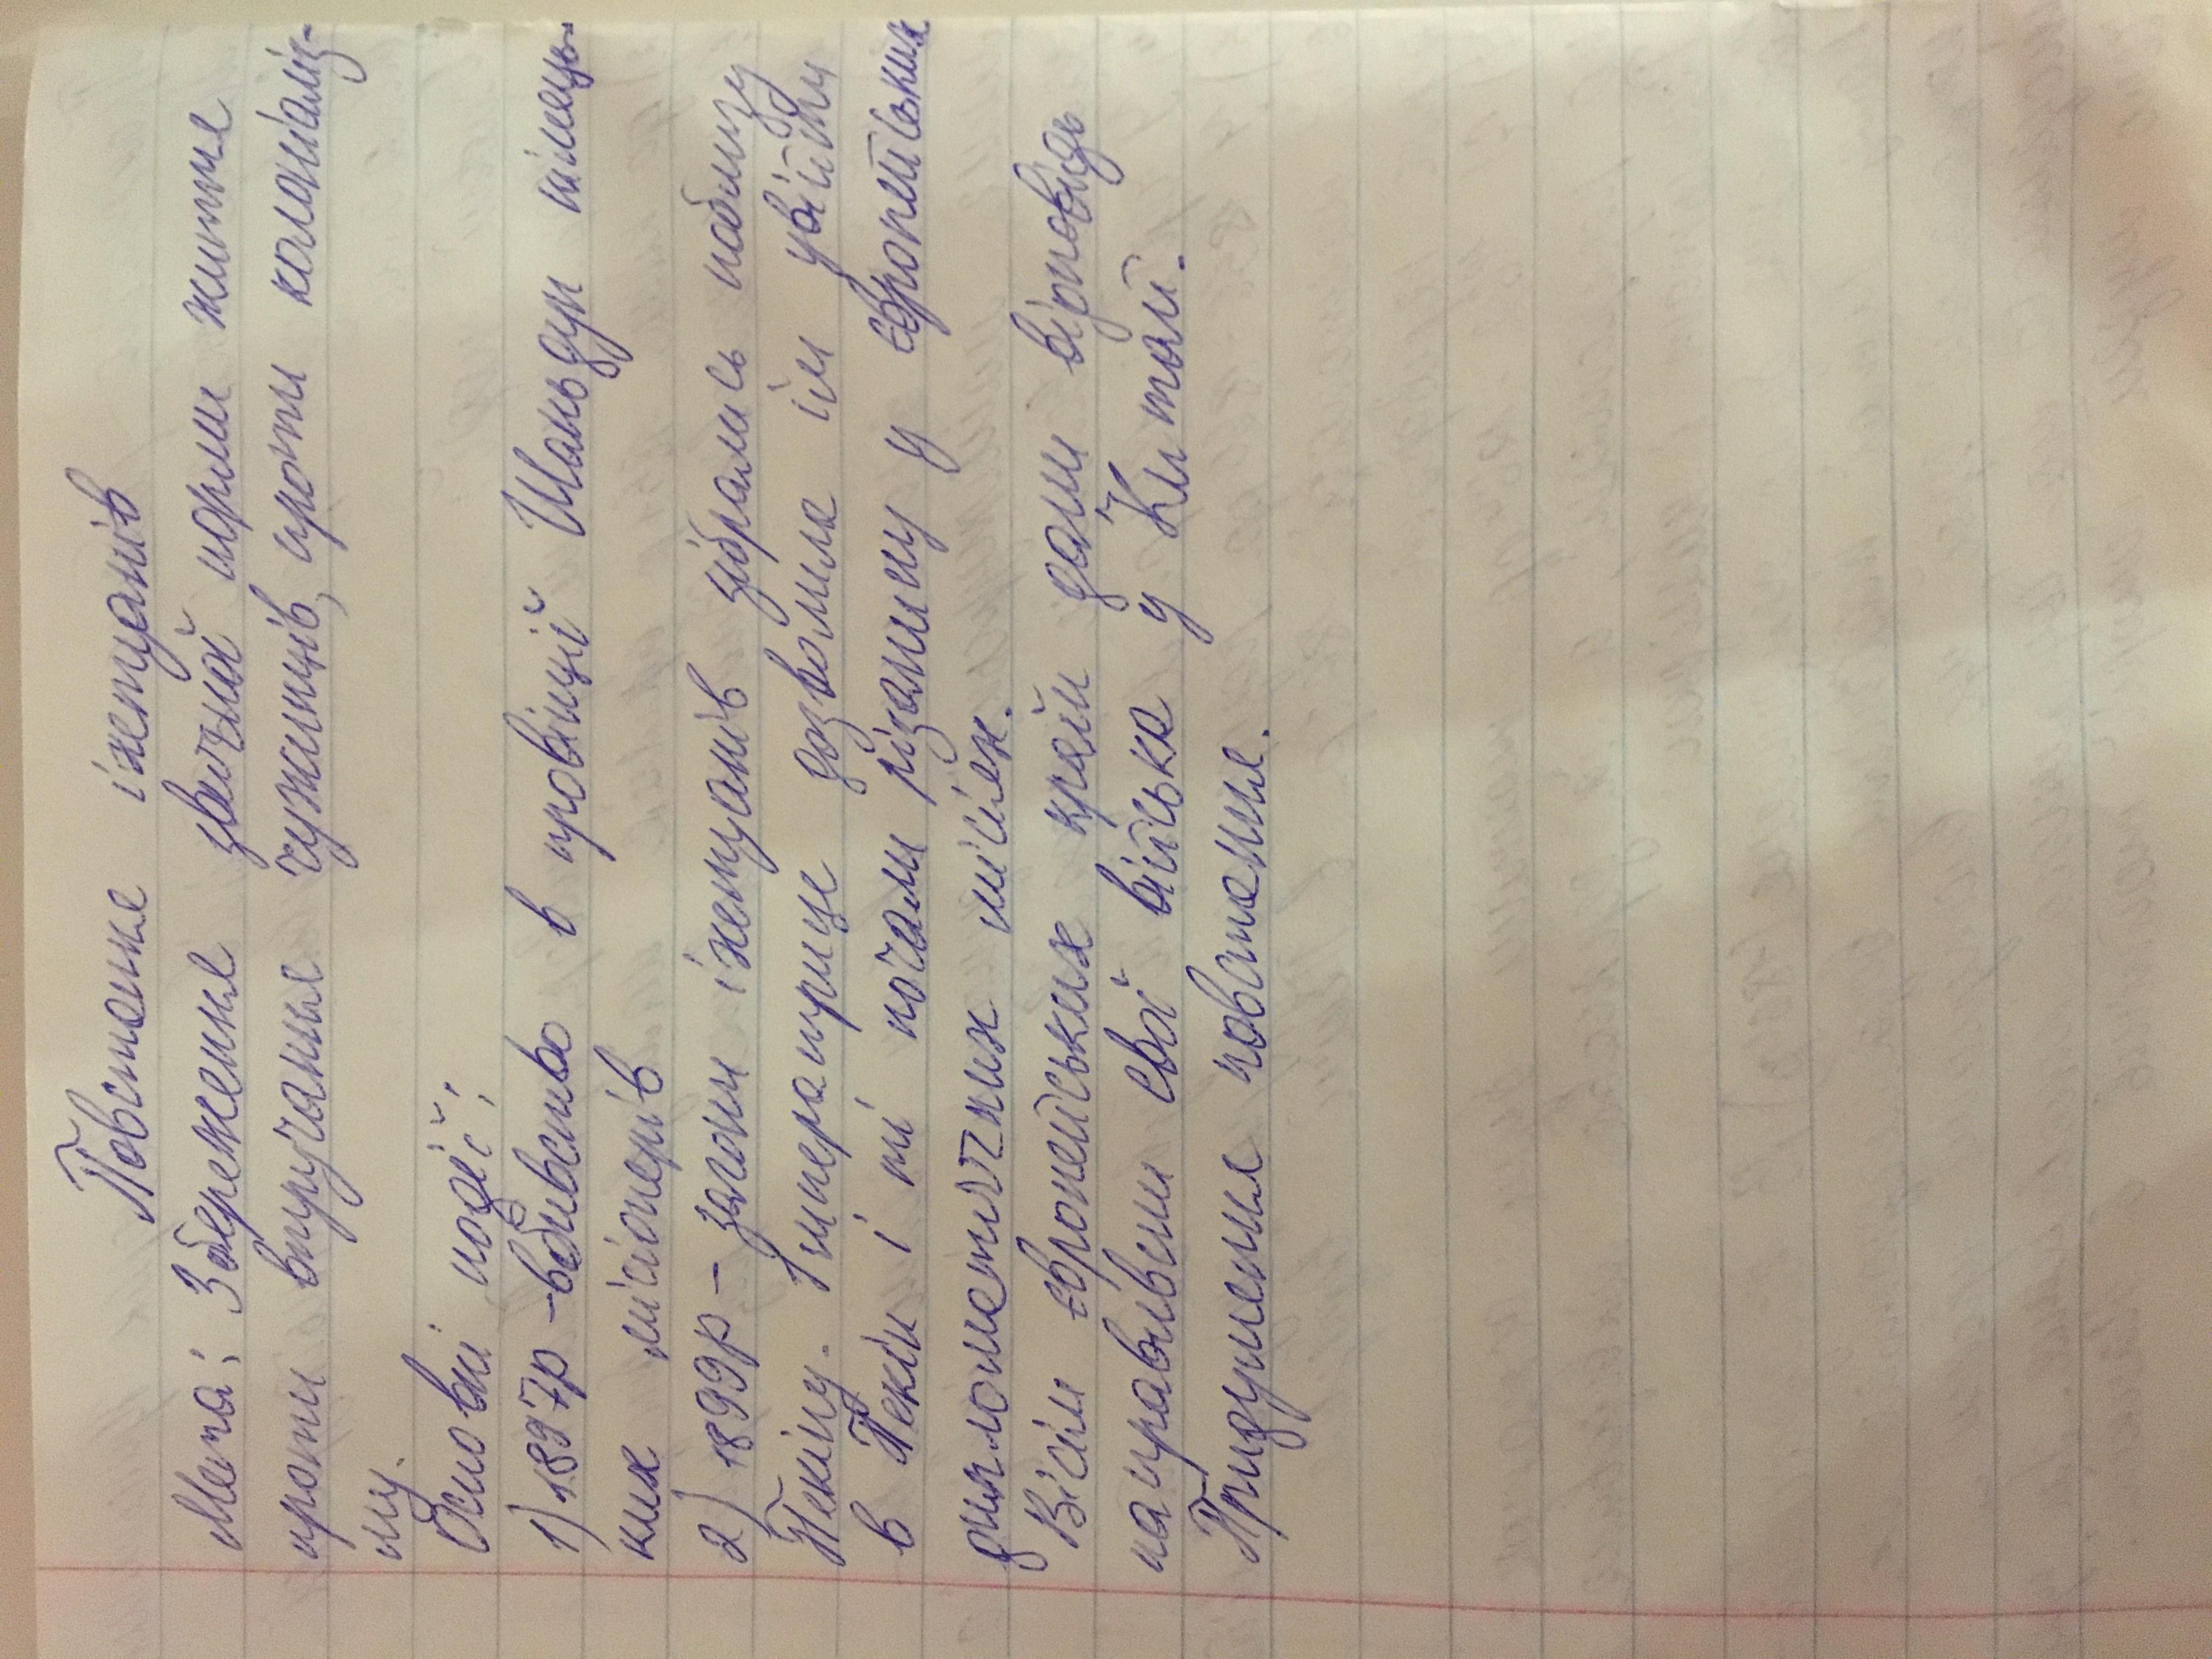 Повстання іхетуанів
Мета: Збереження звичної норми життя
проти втручання чужинців, проти колоніаліз-
му.
Основні події:
1) 1897р - вбивство в провінції Шаньдун німець-
ких місіонерів
2) 1899р - загони іхетуанів зібрались поблизу
Пекіну. Імператриця дозволила їм увійти
в Пекін і ті почали різанину у європейських
дипломатичних місіях.
Вісім європейських країн дали відповідь
направивши свої війська у Китай.
Придушення повстання.